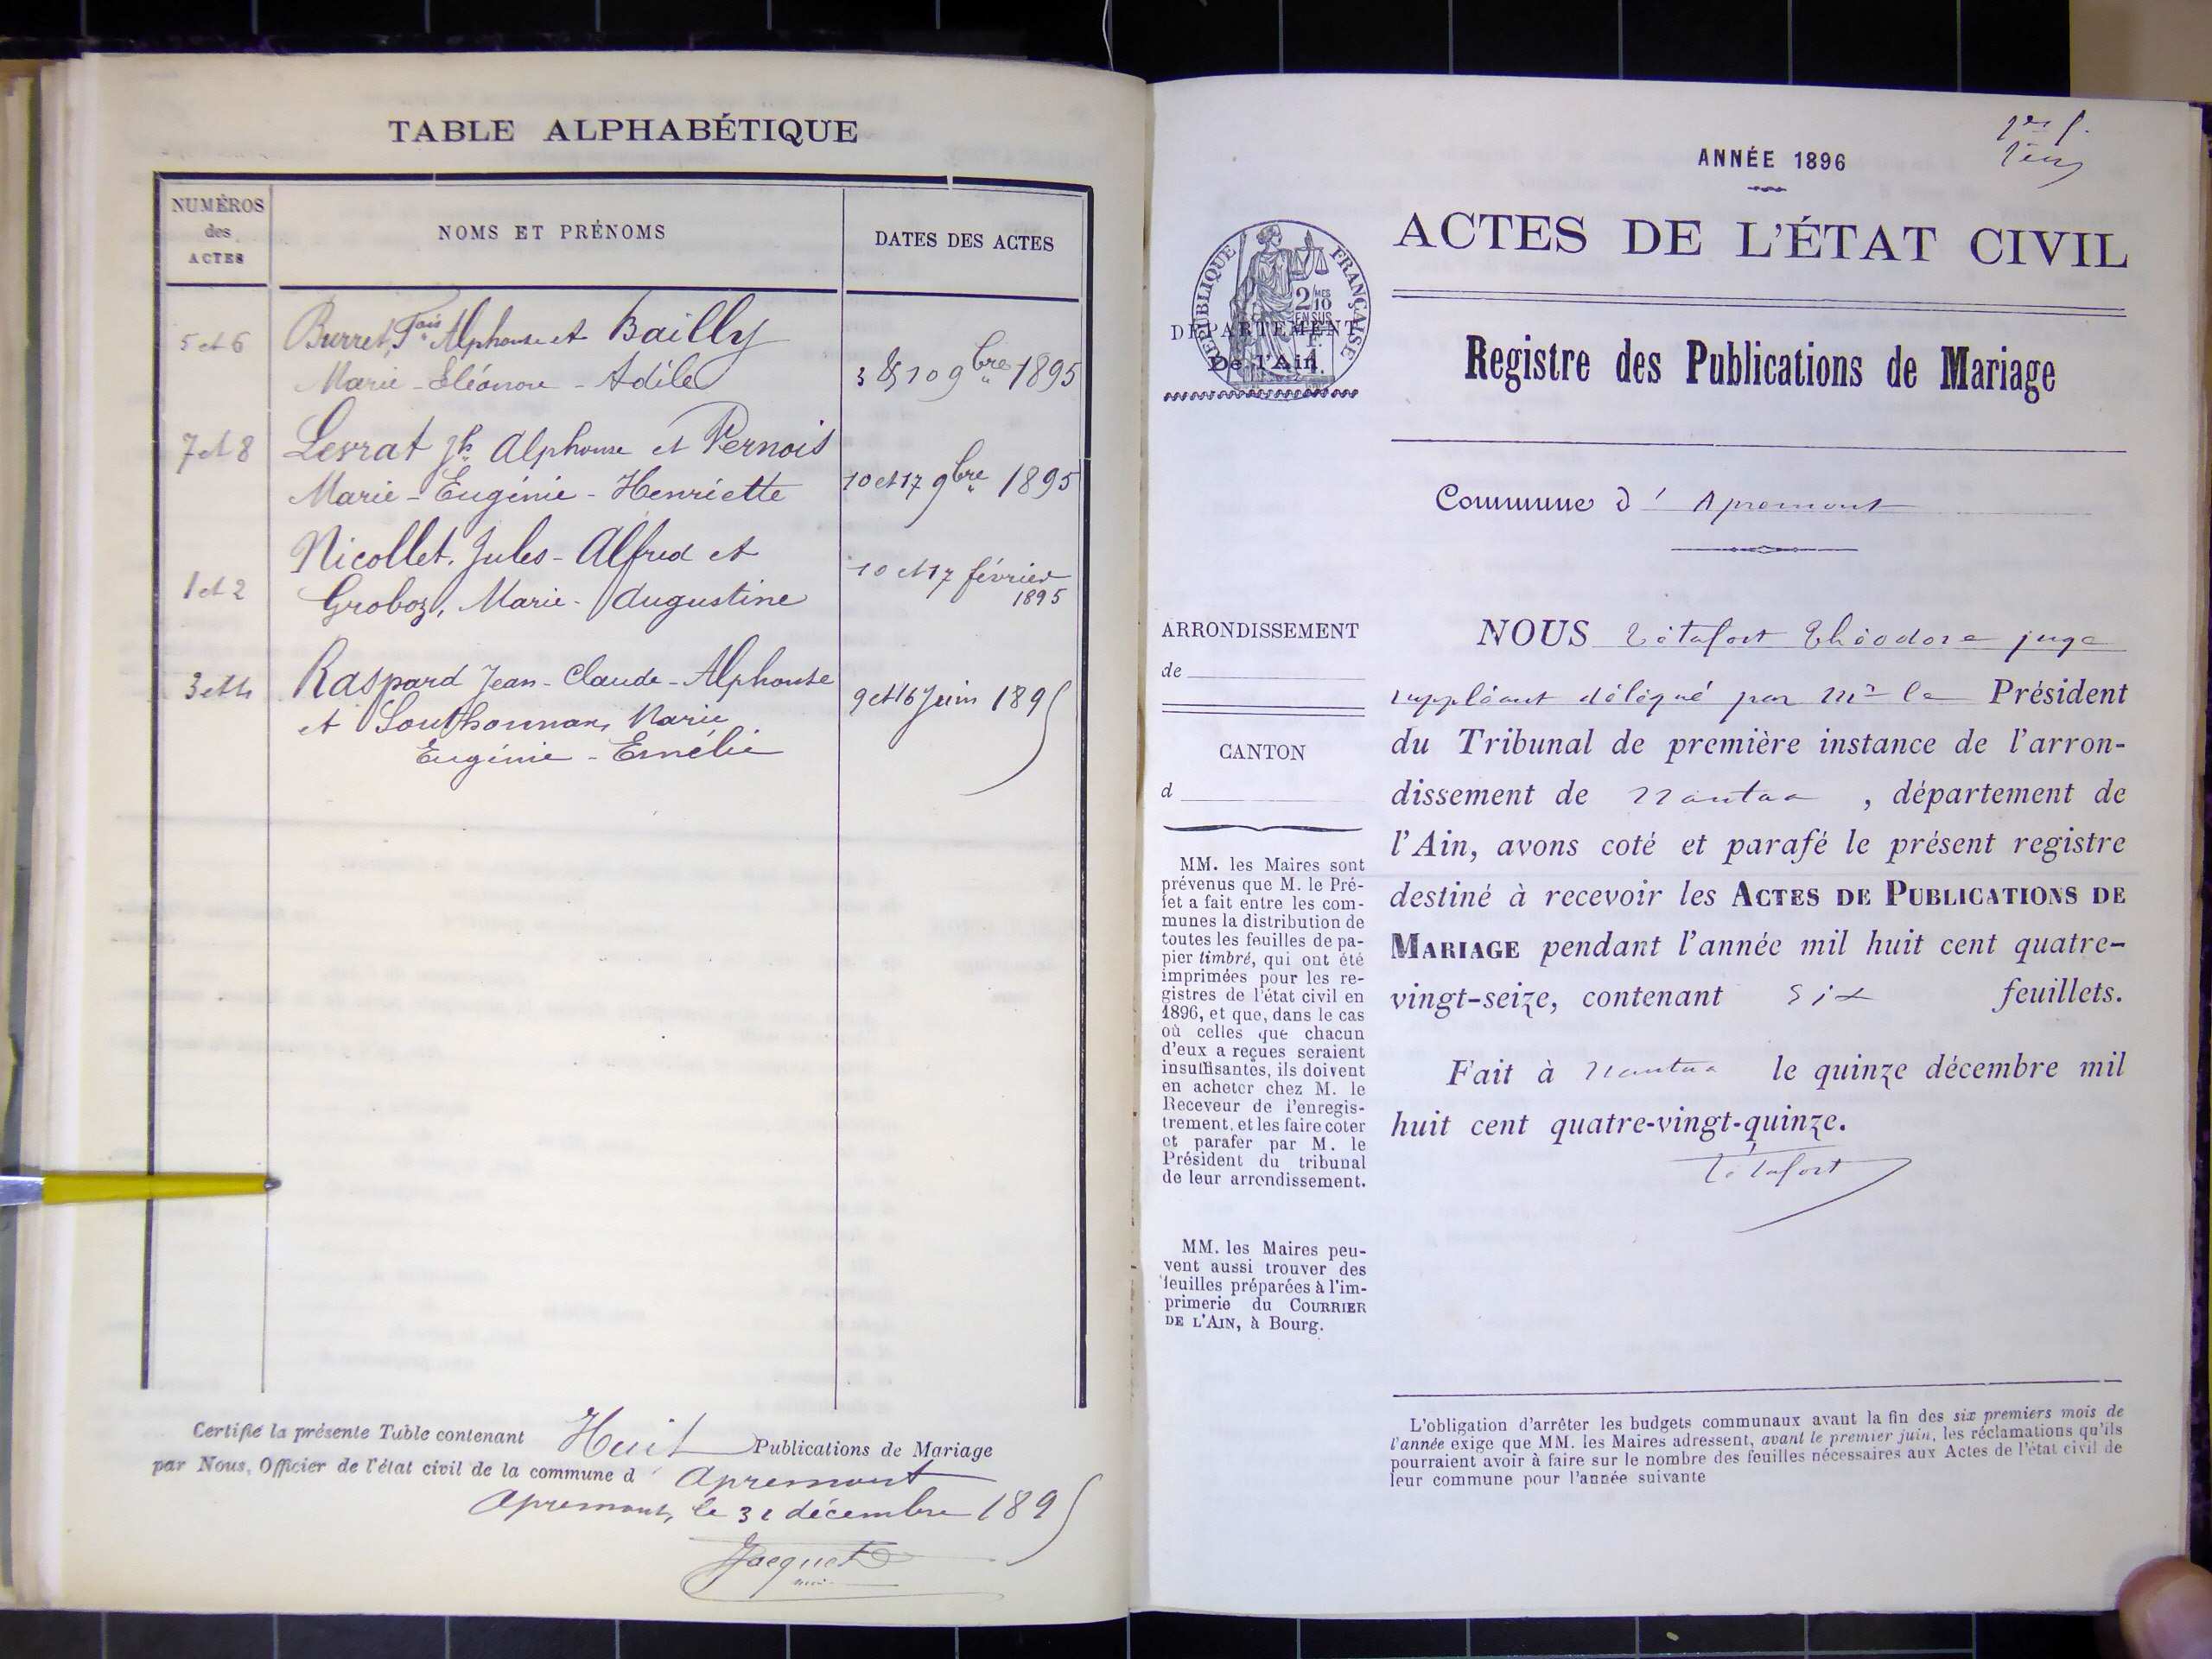 TABLE ALPHABÉTIQUE
NUMÉROS
des
ACTES
NOMS ET PRÉNOMS
DATES DES ACTES
5 et 6
Burret, Fois Alphonse et Bailly
Marie - Eléonore - Adèle
3 & 10 9bre 1895
7 et 8
Levrat Jh Alphonse et Pernois
Marie - Eugénie - Henriette
10 et 17 9bre 1895
1 et 2
Nicollet. Jules - Alfred et
Groboz, Marie - Augustine
10 et 17 février
1895
3 et 4
Raspard Jean - Claude - Alphonse
et Southonnax, Marie
Eugénie - Ernélie
9 et 16 Juin 1895
Certifié la présente Table contenant Huit Publications de Mariage
par Nous, Officier de l'état civil de la commune d' Apremont
Apremont, le 31 décembre 1895
Jacquet
ANNÉE 1896
ACTES DE L'ÉTAT CIVIL
RÉPUBLIQUE FRANÇAISE
2/10MES
EN SUS
DÉPARTEMENT
De l'Ain.
Registre des Publications de Mariage
Commune d' Apremont
ARRONDISSEMENT
de
CANTON
d
MM. les Maires sont
prévenus que M. le Pré-
fet a fait entre les com-
munes la distribution de
toutes les feuilles de pa-
pier timbré, qui ont été
imprimées pour les re-
gistres de l'état civil en
1896, et que, dans le cas
où celles que chacun
d'eux a reçues seraient
insuffisantes, ils doivent
en acheter chez M. le
Receveur de l'enregis-
trement, et les faire coter
et parafer par M. le
Président du tribunal
de leur arrondissement.
MM. les Maires peu-
vent aussi trouver des
feuilles préparées à l'im-
primerie du COURRIER
DE L'AIN, à Bourg.
NOUS Tétafort Théodore juge
suppléant délégué par Mr le Président
du Tribunal de première instance de l'arron-
dissement de Nantua , département de
l'Ain, avons coté et parafé le présent registre
destiné à recevoir les ACTES DE PUBLICATIONS DE
MARIAGE pendant l'année mil huit cent quatre-
vingt-seize, contenant six feuillets.
Fait à Nantua le quinze décembre mil
huit cent quatre-vingt-quinze.
Tétafort
L'obligation d'arrêter les budgets communaux avant la fin des six premiers mois de
l'année exige que MM. les Maires adressent, avant le premier juin, les réclamations qu'ils
pourraient avoir à faire sur le nombre des feuilles nécessaires aux Actes de l'état civil de
leur commune pour l'année suivante